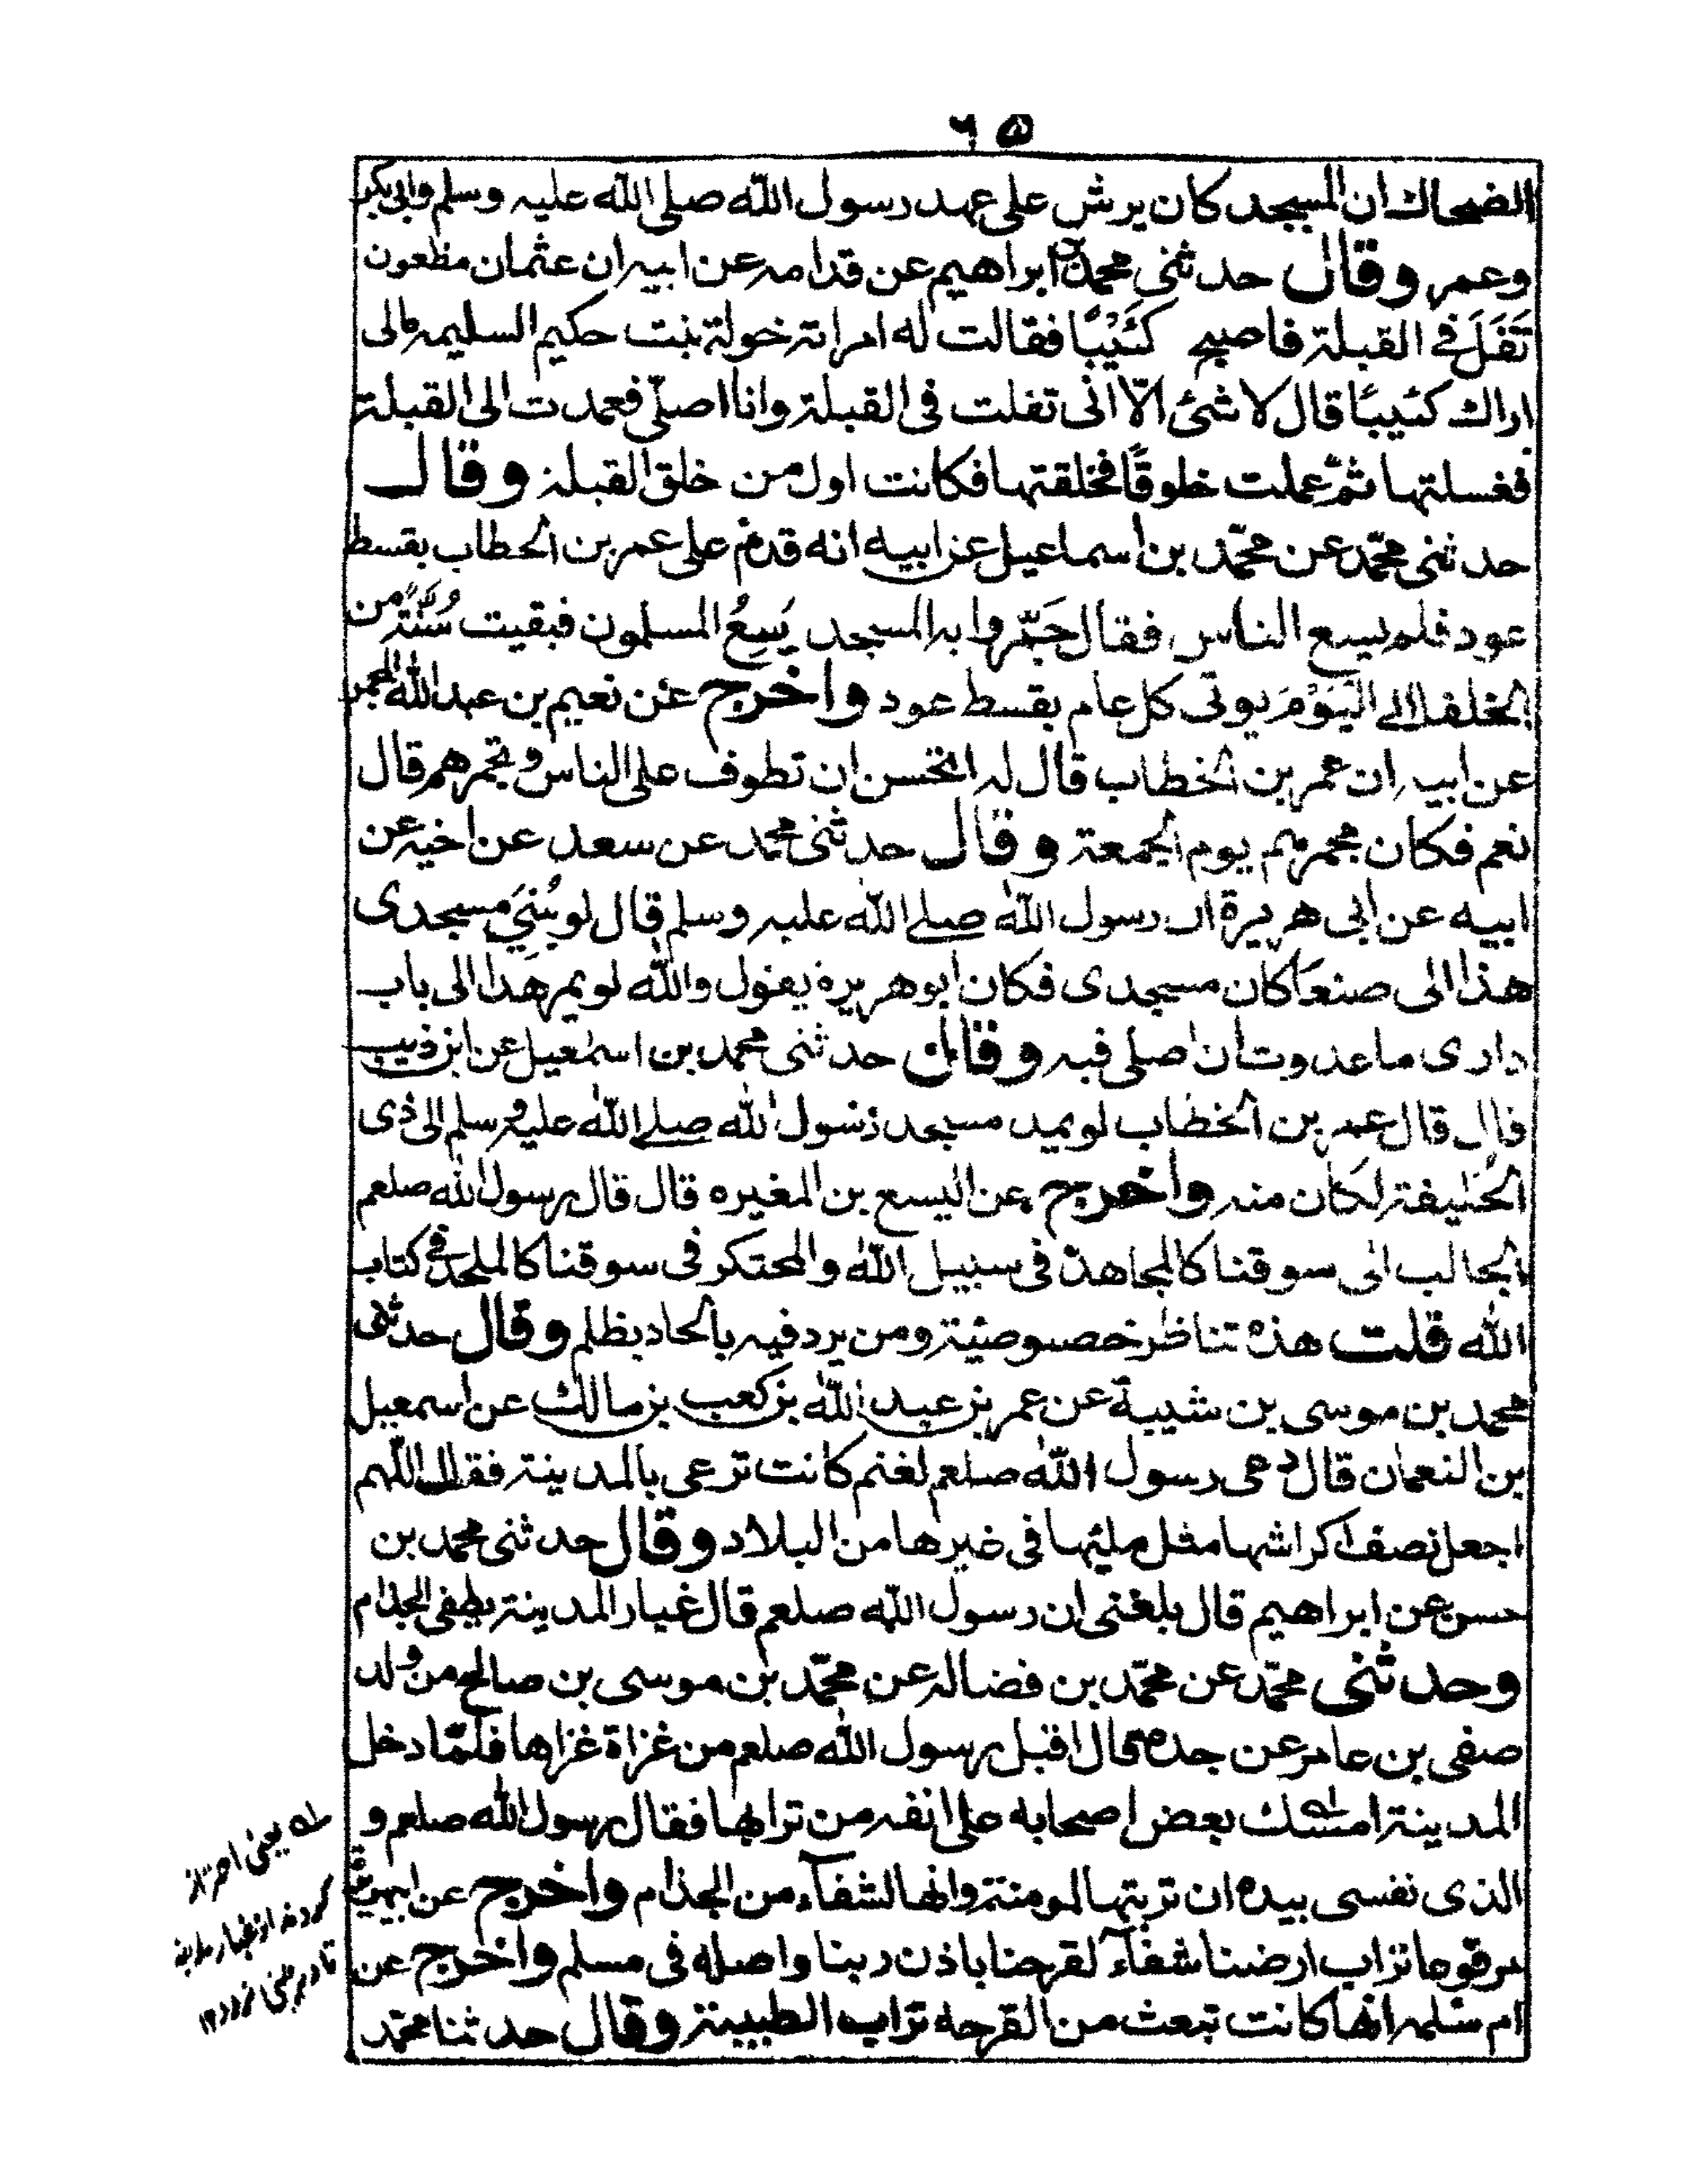 ٦٥
الضحاك ان المسجد كان يرش على عهد رسول الله صلى الله عليه وسلم وابى بكر
وعمر وقال حدثنى محمد بن ابراهيم عن قدامه عن ابيه ان عثمان مظعون
تَفَلَ فى القبلة فاصبح كَئيْبًا فقالت له امراته خولة بنت حكيم السليمه مالى
اراك كئيبًا قال لا شئ الّا انى تفلت فى القبلة وانا اصلّى فعمدت الى القبلة
فغسلتها ثمّ عملت خلوقًا فخلقتها فكانت اول من خلق القبلة وقال
حدثنى محمّد عن محمّد بن اسماعيل عن ابيه انه قدم على عمر بن الخطاب بقسط
عود فلم يسع الناس فقال جَمّروا به المسجد يَسِعُ المسلمون فبقيت سُنّة من
الخلفا الى اليَوْمَ يوتى كل عام بقسط عود واخرج عن نعيم بن عبد الله المجمر
عن ابيه ان عمر بن الخطاب قال له اتحسن ان تطوف على الناس وتجمرهم قال
نعم فكان مجمرهم يوم الجمعة وقال حدثنى محمد عن سعد عن اخيه عن
ابيه عن ابى هريرة ان رسول الله صلى الله عليه وسلم قال لو بُنِيَ مسجدى
هذا الى صنعا كان مسجدى فكان ابو هريره يقول والله لو يمر هذا الى باب
دارى ما عدوت ان اصلى فيه وقال حدثنى محمد بن اسمعيل عن ابن ذئيب
قال قال عمر بن الخطاب لو يمد مسجد رسول الله صلى الله عليه وسلم الى ذى
الحُليفة لكان منه واخرج عن اليسع بن المغيره قال قال رسول الله صلعم
الجالب الى سوقنا كالمجاهد فى سبيل الله والمحتكر فى سوقنا كالملحد فى كتاب
الله قلت هذه تناظر خصوصيّة ومن يرد فيه بالحاد بظلم وقال حدثنى
محمد بن موسى بن شيبة عن عمر بن عبد الله بن كعب بن مالك عن اسمعيل
بن النعمان قال دعى رسول الله صلعم لغنم كانت ترعى بالمدينة فقال اللّهم
اجعل نصف اكراشها مثل مليها فى غيرها من البلاد وقال حدثنى محمد بن
حسن عن ابراهيم قال بلغنى ان رسول الله صلعم قال غبار المدينة يطفى الجذام
وحدثنى محمّد عن محمّد بن فضاله عن محمّد بن موسى بن صالح من ولد
صفى بن عامر عن جده قال اقبل رسول الله صلعم من غزاة غزاها فلمّا دخل
المدينة امسك بعض اصحابه على انفه من ترابها فقال رسول الله صلعم و
الذى نفسى بيده ان تربتها لمومنة وانها لشفآء من الجذام واخرج عن
مرفوعا تراب ارضنا شفآء لقرحنا باذن ربنا واصله فى مسلم واخرج عن
ام سلمه انها كانت تبعث من القرحه تراب الطبينة وقال حدثنا محمّد
له يعنى احتراز
كردند از غبار مدينه